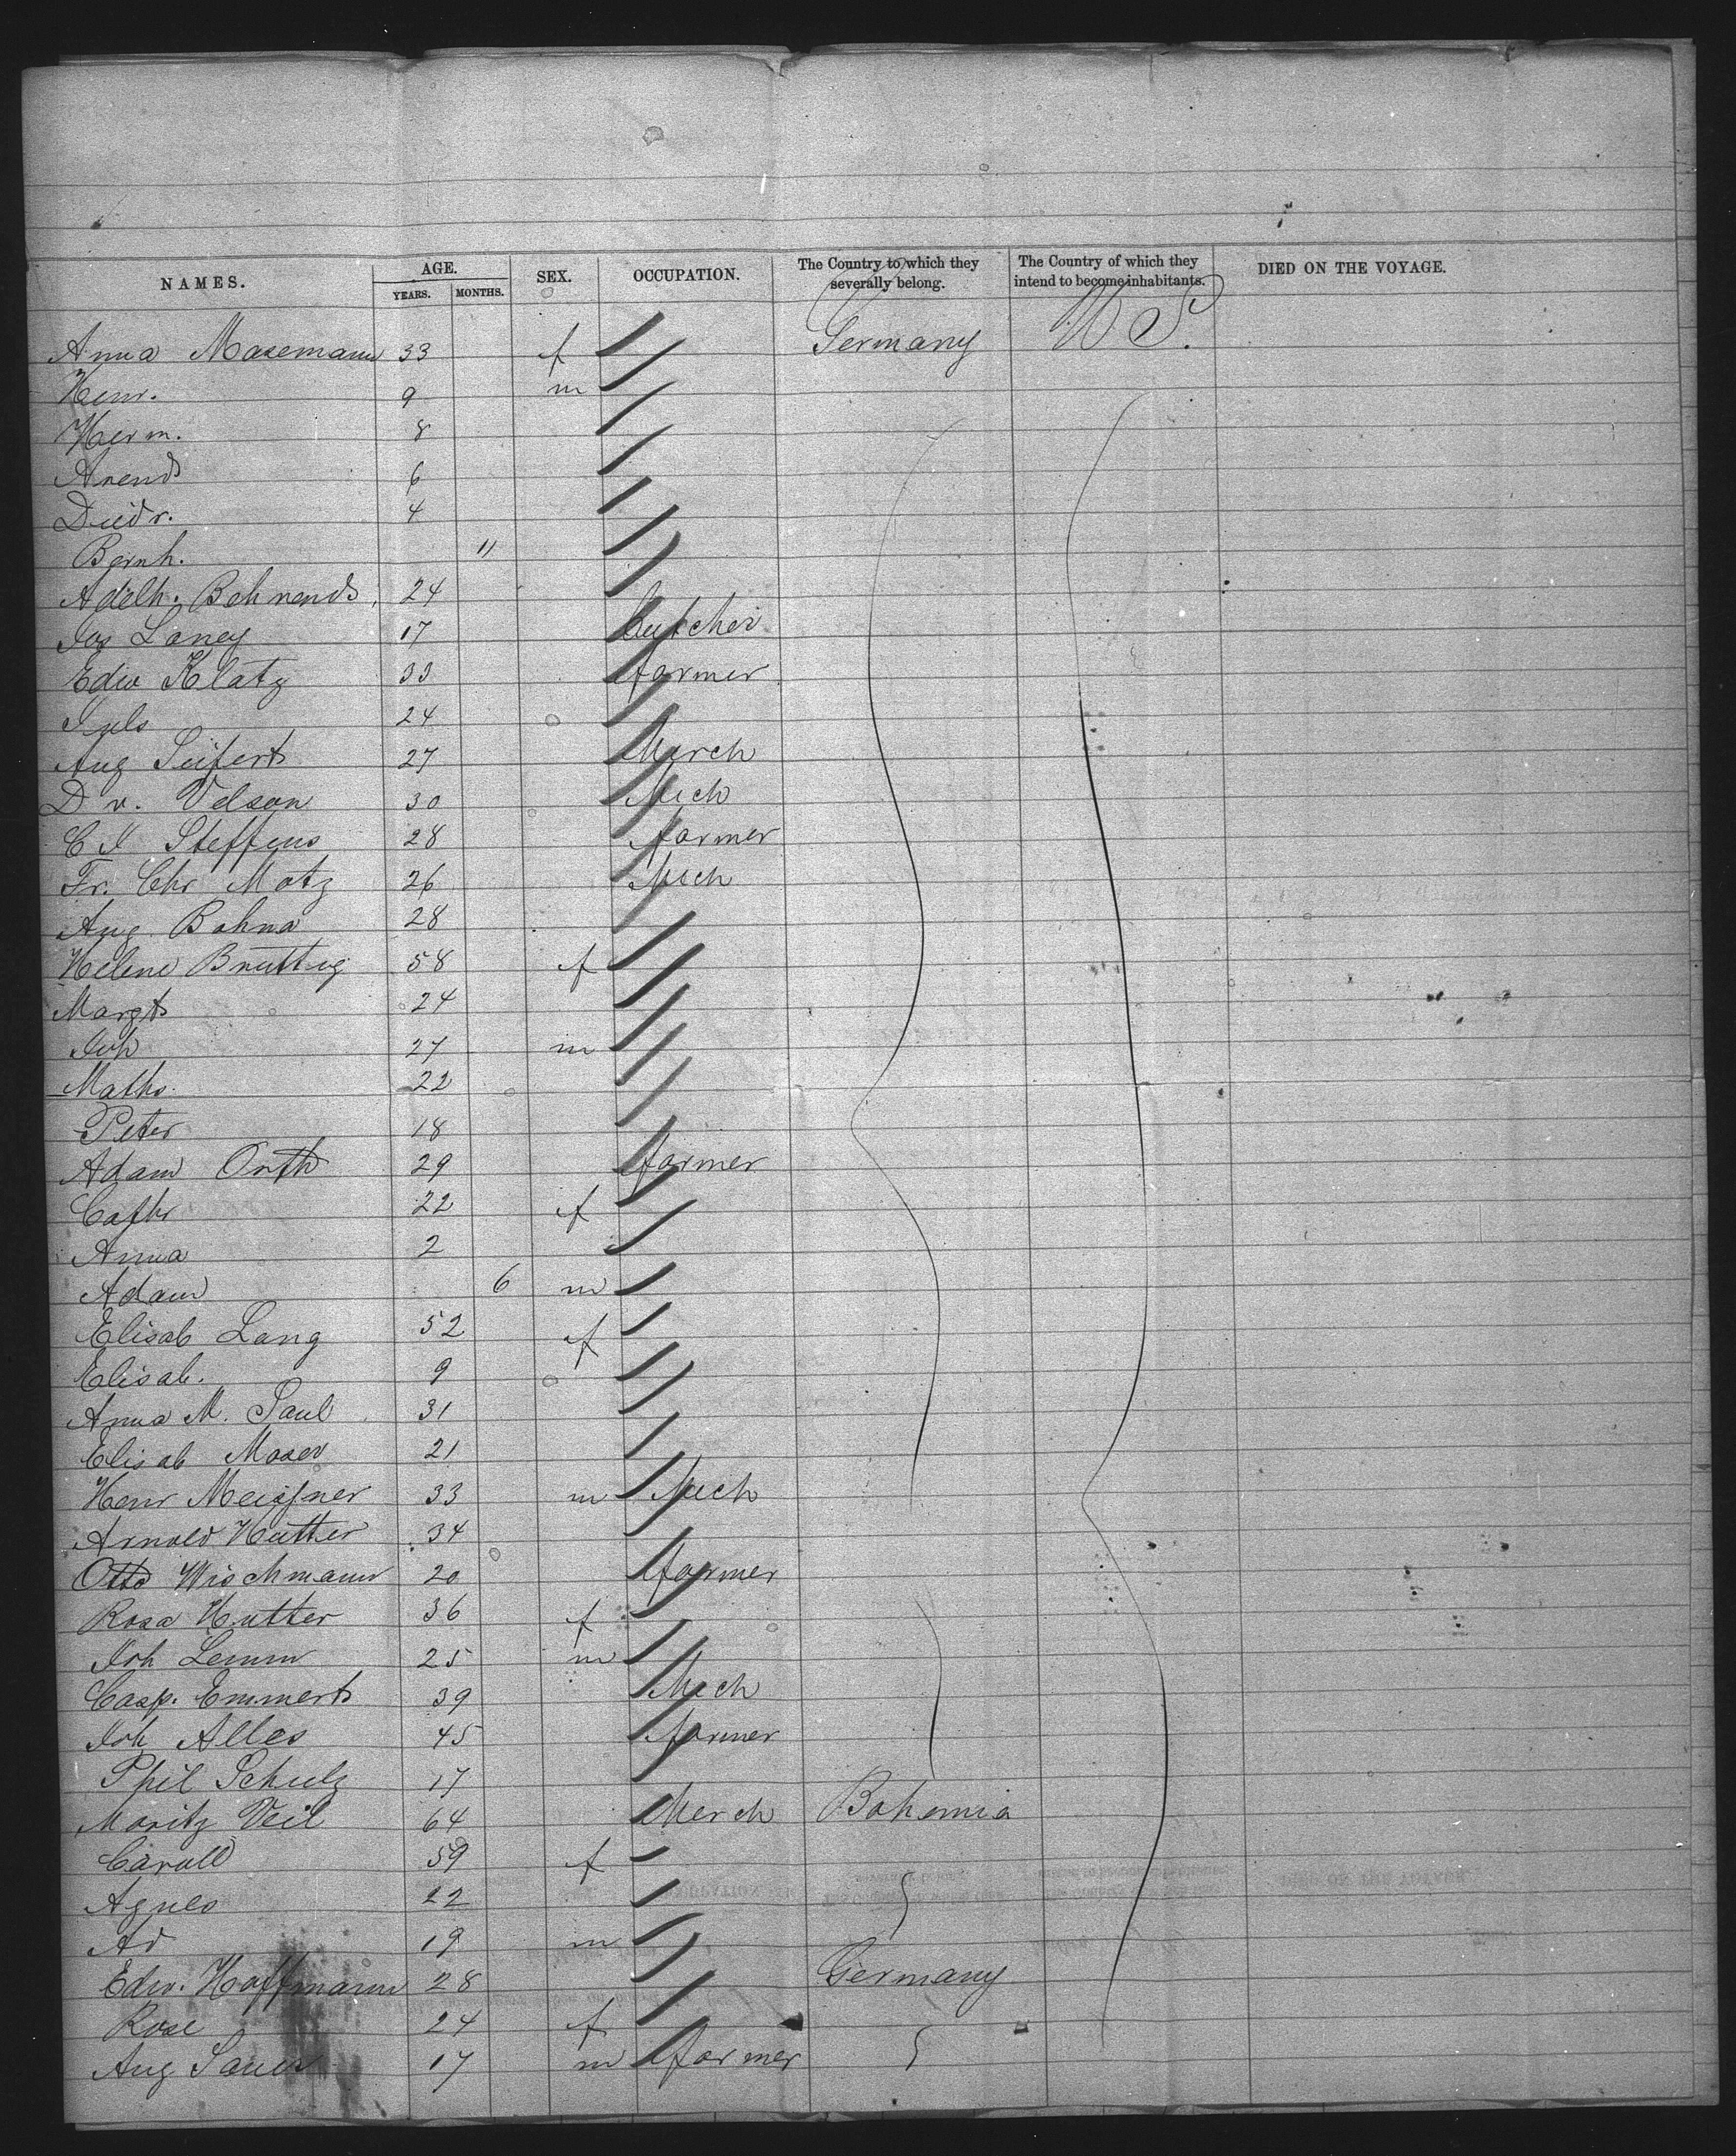 NAMES. AGE. YEARS. MONTHS. SEX. OCCUPATION. The Country to which they severally belong. The Country of which they intend to become inhabitants. DIED ON THE VOYAGE.
Anna Masemann 33 f Germany U S.
Henr. 9 m
Herm. 8
Arend 6
Diedr. 4
Bernh. 11
Adelh. Behrends 24
Jos Laney 17 butcher
Edw Klatz 33 farmer
Juls 24
Aug Seifert 27 Merch
D v. Velson 30 Mech
C J Steffens 28 farmer
Fr. Chr Motz 26 Mech
Aug. Bohna 28
Helene Bruttig 58 f
Margt 24
Joh 27 m
Maths. 22
Peter 18
Adam Orth 29 farmer
Cathr 22 f
Anna 2
Adam 6 m
Elisab Lang 52 f
Elisab. 9
Anna M. Paul 31
Elisab Moser 21
Henr Meissner 33 m Mech
Arnold Hutter 34
Otto Wischmann 20 farmer
Rosa Hutter 36 f
Joh Lemm 25 m
Casp. Emmert 39 Mech
Joh Alles 45 farmer
Phil Schulz 17
Moritz Veil 64 Merch Bohemia
Caroll 59 f
Agnes 22
Ad 19 m
Edw. Hoffmann 28 Germany
Rose 24 f
Aug Sauer 17 m farmer